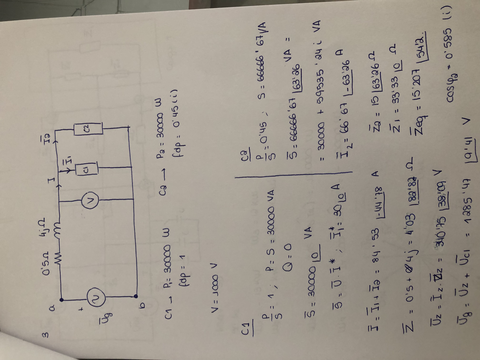 3
a
0'5Ω
4jΩ
I
I̅₁
I̅₂
+
V
U̅g
V
C1
C2
b
C1 → P₁ = 30000 W
fdp = 1
C2 → P₂ = 30000 W
fdp = 0'45 (i)
V = 1000 V
C1
P/S = 1, P = S = 30000 VA
Q = 0
S̅ = 30000 |0 VA
S̅ = U̅ I̅* ; I̅₁* = 30 |0 A
C2
P/S = 0'45 ; S = 66666'67 VA
S̅ = 66666'67 |63'26 VA =
= 30000 + 59535'24 i VA
I̅₂ = 66'67 |-63'26 A
I̅ = I̅₁ + I̅₂ = 84'53 |-44'78 A
Z̅ = 0'5 + 4j = 4'03 |82'87 Ω
U̅z = I̅z · Z̅z = 340'75 |38'09 V
U̅g = U̅z + U̅c1 = 1285'47 |9'41 V
Z̅₂ = 15 |63'26 Ω
Z̅₁ = 33'33 |0 Ω
Z̅eq = 15'207 |54'2
cosφ₂ = 0'585 (i)